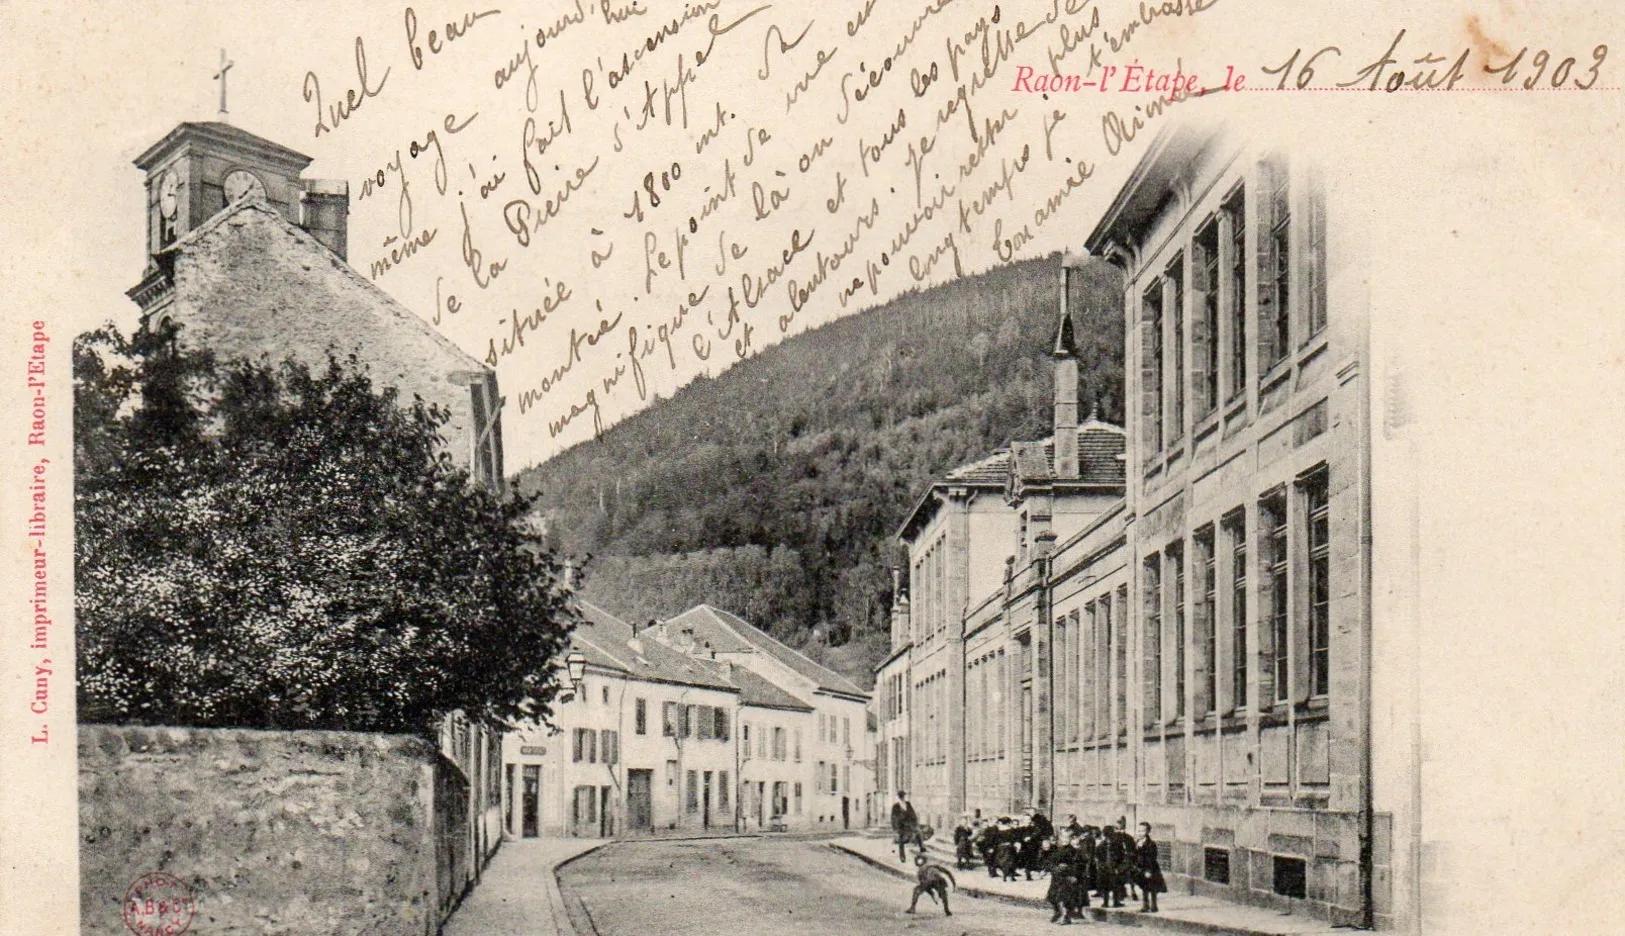 Raon-l'Étape, le 16 Août 1903
Quel beau
voyage aujourd'hui
même j'ai fait l'ascension
de la Pierre d'Appel
située à 1800 mt. de
montée. Le point de vue est
magnifique de là on découvre
l'Alsace et tous les pays
et alentours. je regrette de
ne pouvoir rester plus
longtemps je t'embrasse
Ton amie Aimée
L. Cuny, imprimeur-libraire, Raon-l'Etape
A.B & Cie
NANCY